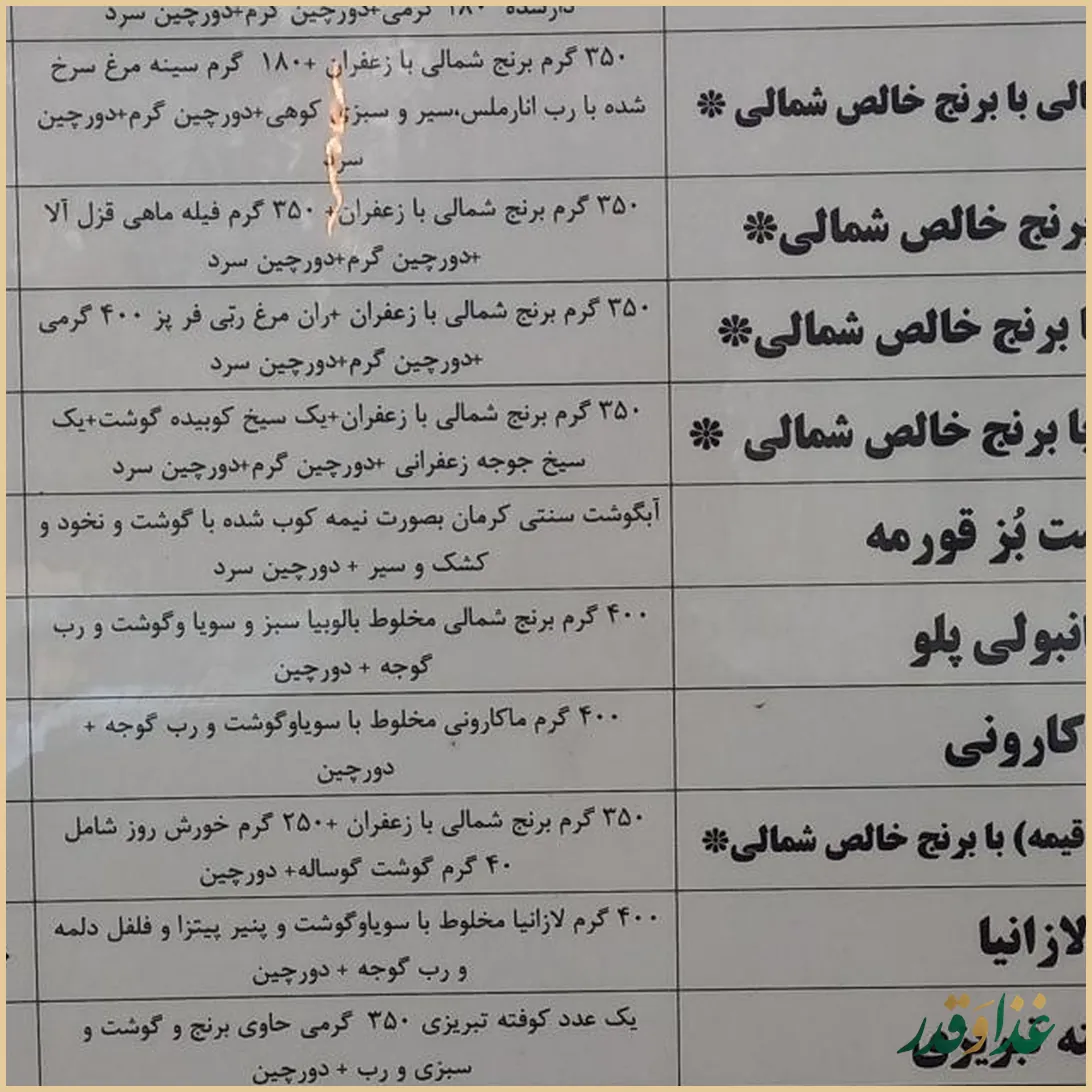 دارشده ۱۸۰ گرمی+دورچین گرم+دورچین سرد
با برنج خالص شمالی ❊
۳۵۰ گرم برنج شمالی با زعفران +۱۸۰ گرم سینه مرغ سرخ
شده با رب انارملس،سیر و سبزی کوهی+دورچین گرم+دورچین
سرد
برنج خالص شمالی❊
۳۵۰ گرم برنج شمالی با زعفران+ ۳۵۰ گرم فیله ماهی قزل آلا
+دورچین گرم+دورچین سرد
برنج خالص شمالی❊
۳۵۰ گرم برنج شمالی با زعفران +ران مرغ ربّی فر پز ۴۰۰ گرمی
+دورچین گرم+دورچین سرد
با برنج خالص شمالی ❊
۳۵۰ گرم برنج شمالی با زعفران+یک سیخ کوبیده گوشت+یک
سیخ جوجه زعفرانی +دورچین گرم+دورچین سرد
بُز قورمه
آبگوشت سنتی کرمان بصورت نیمه کوب شده با گوشت و نخود و
کشک و سیر + دورچین سرد
نبولی پلو
۴۰۰ گرم برنج شمالی مخلوط بالوبیا سبز و سویا وگوشت و رب
گوجه + دورچین
کارونی
۴۰۰ گرم ماکارونی مخلوط با سویاوگوشت و رب گوجه +
دورچین
قیمه) با برنج خالص شمالی❊
۳۵۰ گرم برنج شمالی با زعفران +۲۵۰ گرم خورش روز شامل
۴۰ گرم گوشت گوساله+ دورچین
لازانیا
۴۰۰ گرم لازانیا مخلوط با سویاوگوشت و پنیر پیتزا و فلفل دلمه
و رب گوجه + دورچین
ته تبریزی
یک عدد کوفته تبریزی ۳۵۰ گرمی حاوی برنج و گوشت و
سبزی و رب + دورچین
غذا و قدر